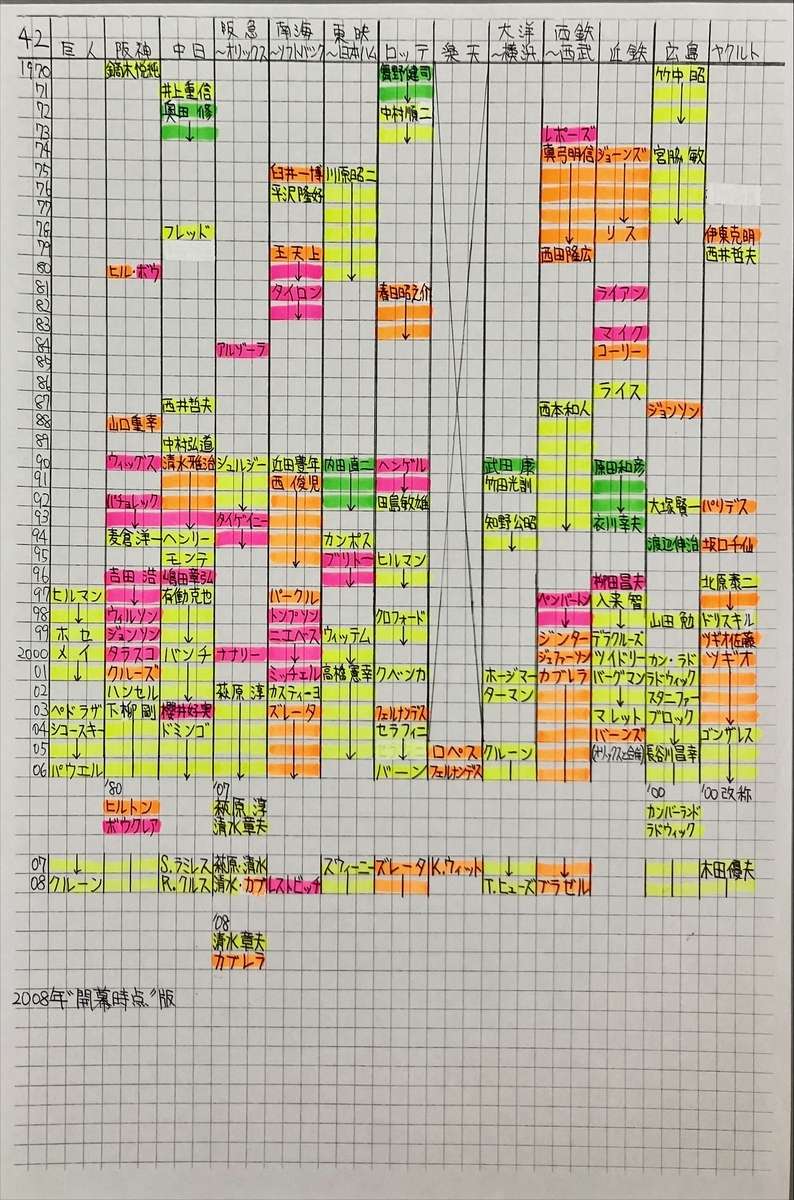 42 巨人 阪神 中日 阪急～オリックス 南海～ソフトバンク 東映～日本ハム ロッテ 楽天 大洋～横浜 西鉄～西武 近鉄 広島 ヤクルト
1970 鏑木悦純 竹中昭
71 井上重信
72 奥田修 中村順二
73 レポーズ
74 真弓明信 ジョーンズ 宮脇敏
75 臼井一博 川原昭二
76 平沢隆好
77
78 フレッド リス 伊東克明
79 王天上 西田隆広 西井哲夫
80 ヒル・ボウ
81 タイロン 春日昭之介 ライアン
82
83 マイク
84 アルゾーラ コーリー
85
86 ライス
87 西井哲夫 西本和人 ジョンソン
88 山口重幸
89 中村弘道
90 ウィッグス 清水雅治 シュルジー 近田豊年 内田直二 ヘンゲル 武田康 原田和彦
91 西俊児 竹田光訓
92 パチョレック 田島敏雄 大塚賢一 パリデス
93 タイゲイニー 知野公昭 衣川幸夫
94 麦倉洋一 ヘンリー カンポス 渡辺伸治 坂口千仙
95 モンテ ブリトー ヒルマン
96 吉田浩 嶋田章弘 柳田昌夫 北原泰二
97 ヒルマン 有働克也 パークル ペンバートン 入来智
98 ウィルソン トンプソン クロフォード 山田勉 ドリスキル
99 ホセ ジョンソン ニエベス ウィッテム ジンター デラクルーズ ツギオ佐藤
2000 メイ タラスコ バンチ ナナリー ジェファーソン ツイドリー カン・ラド ツギオ
01 クルーズ ミッチェル 高橋憲幸 クベンカ ホージマー カブレラ バーグマン ラドウィック
02 ハンセル 萩原淳 カスティーヨ ターマン スタニファー
03 ペドラザ 下柳剛 櫻井好実 ズレータ フェルナンデス マレット ブロック
04 シコースキー ドミンゴ セラフィニ バーンズ ゴンザレス
05 ロペス クルーン (オリックスと合併) 長谷川昌幸
06 パウエル バーン フェルナンデス
'80 '07 '00 '00改称
ヒルトン 萩原淳 カンバーランド
ボウクレア 清水章夫 ラドウィック
07 S.ラミレス 萩原・清水 スウィーニー ズレータ K.ウィット 木田優夫
08 クルーン R.クルス 清水・カブ レストビッチ T.ヒューズ ブラゼル
'08
清水章夫
カブレラ
2008年“開幕時点”版